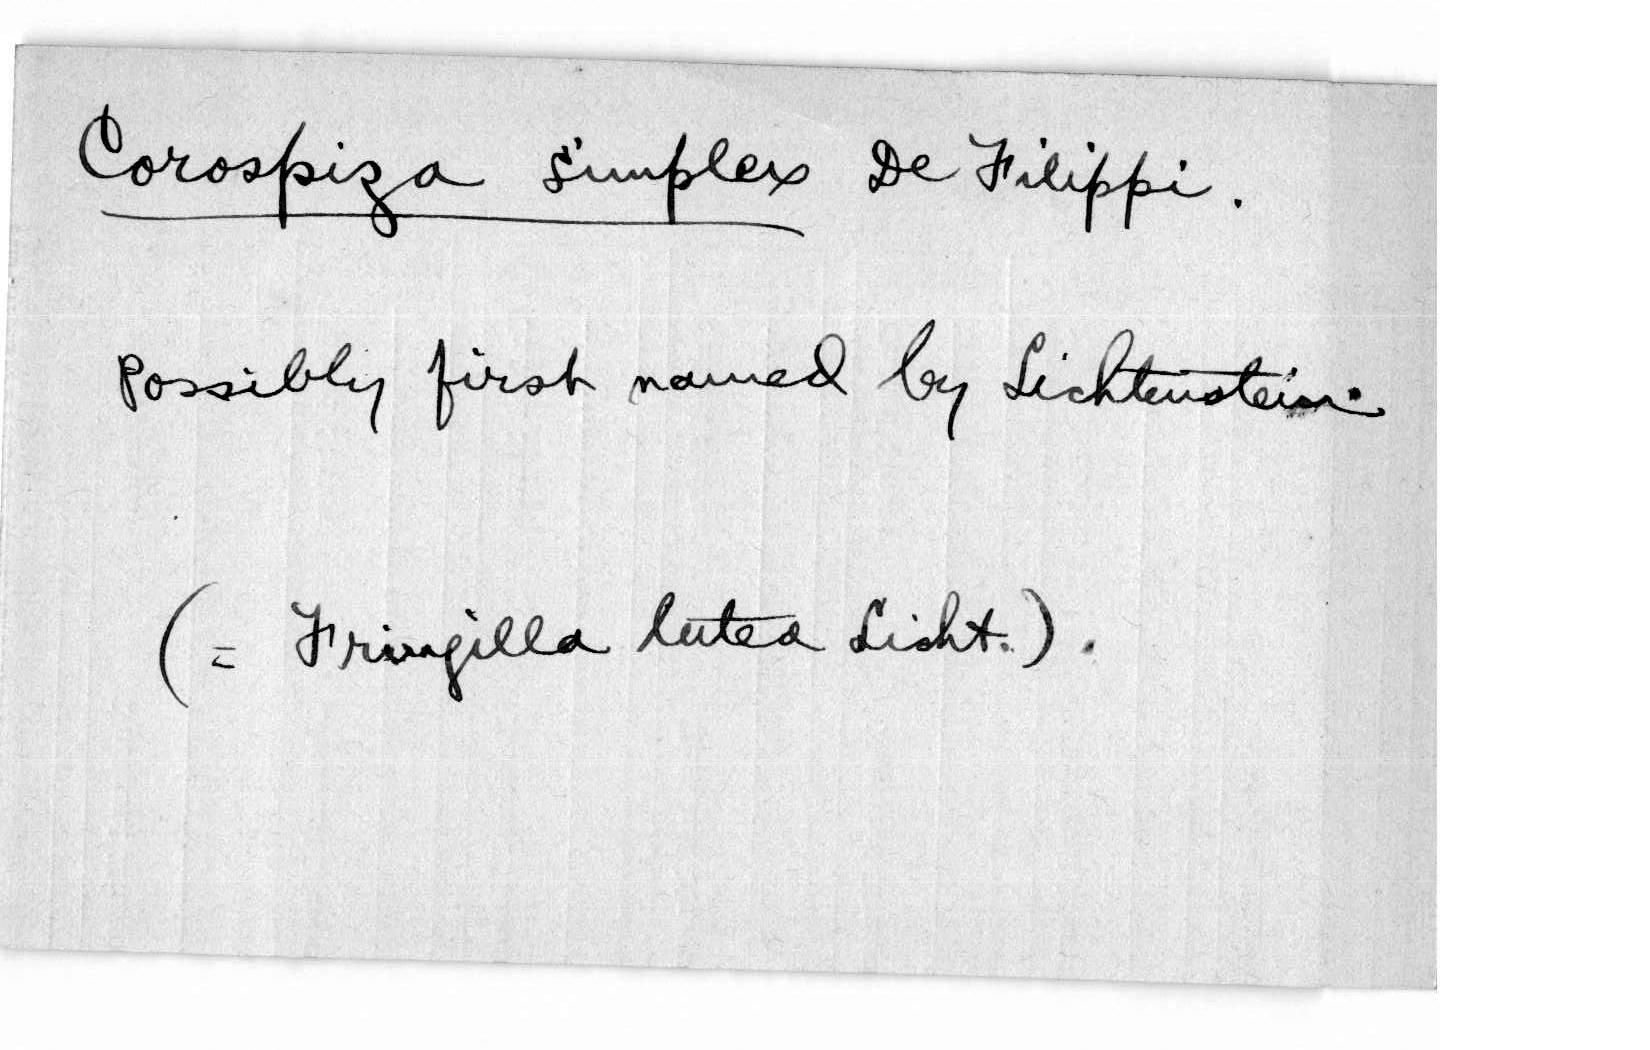 Corospiza simplex De Filippi.
Possibly first named by Lichtenstein.
(= Fringilla lutea Licht.).